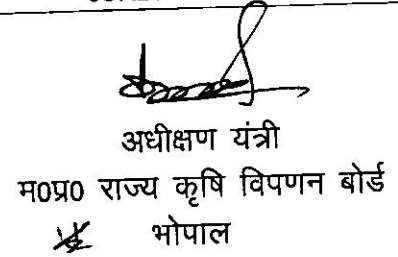 अधीक्षण यंत्री
म0प्र0 राज्य कृषि विपणन बोर्ड
भोपाल